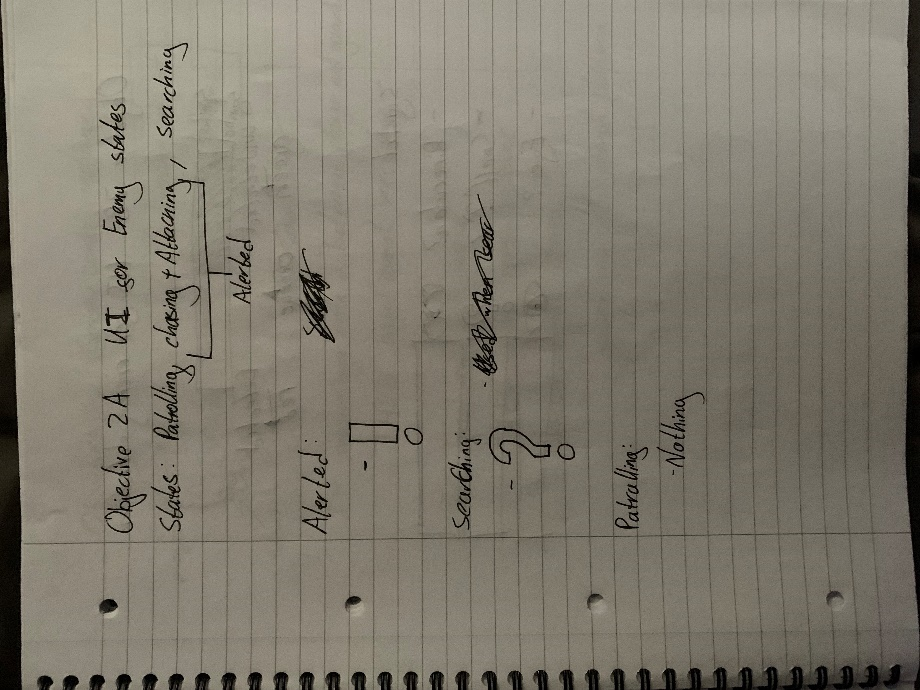 Objective 2A UI for Enemy states
States: Patrolling, chasing + Attacking, searching
Alerted
Alerted:
- !
Searching:
- ? - when
Patrolling:
- Nothing